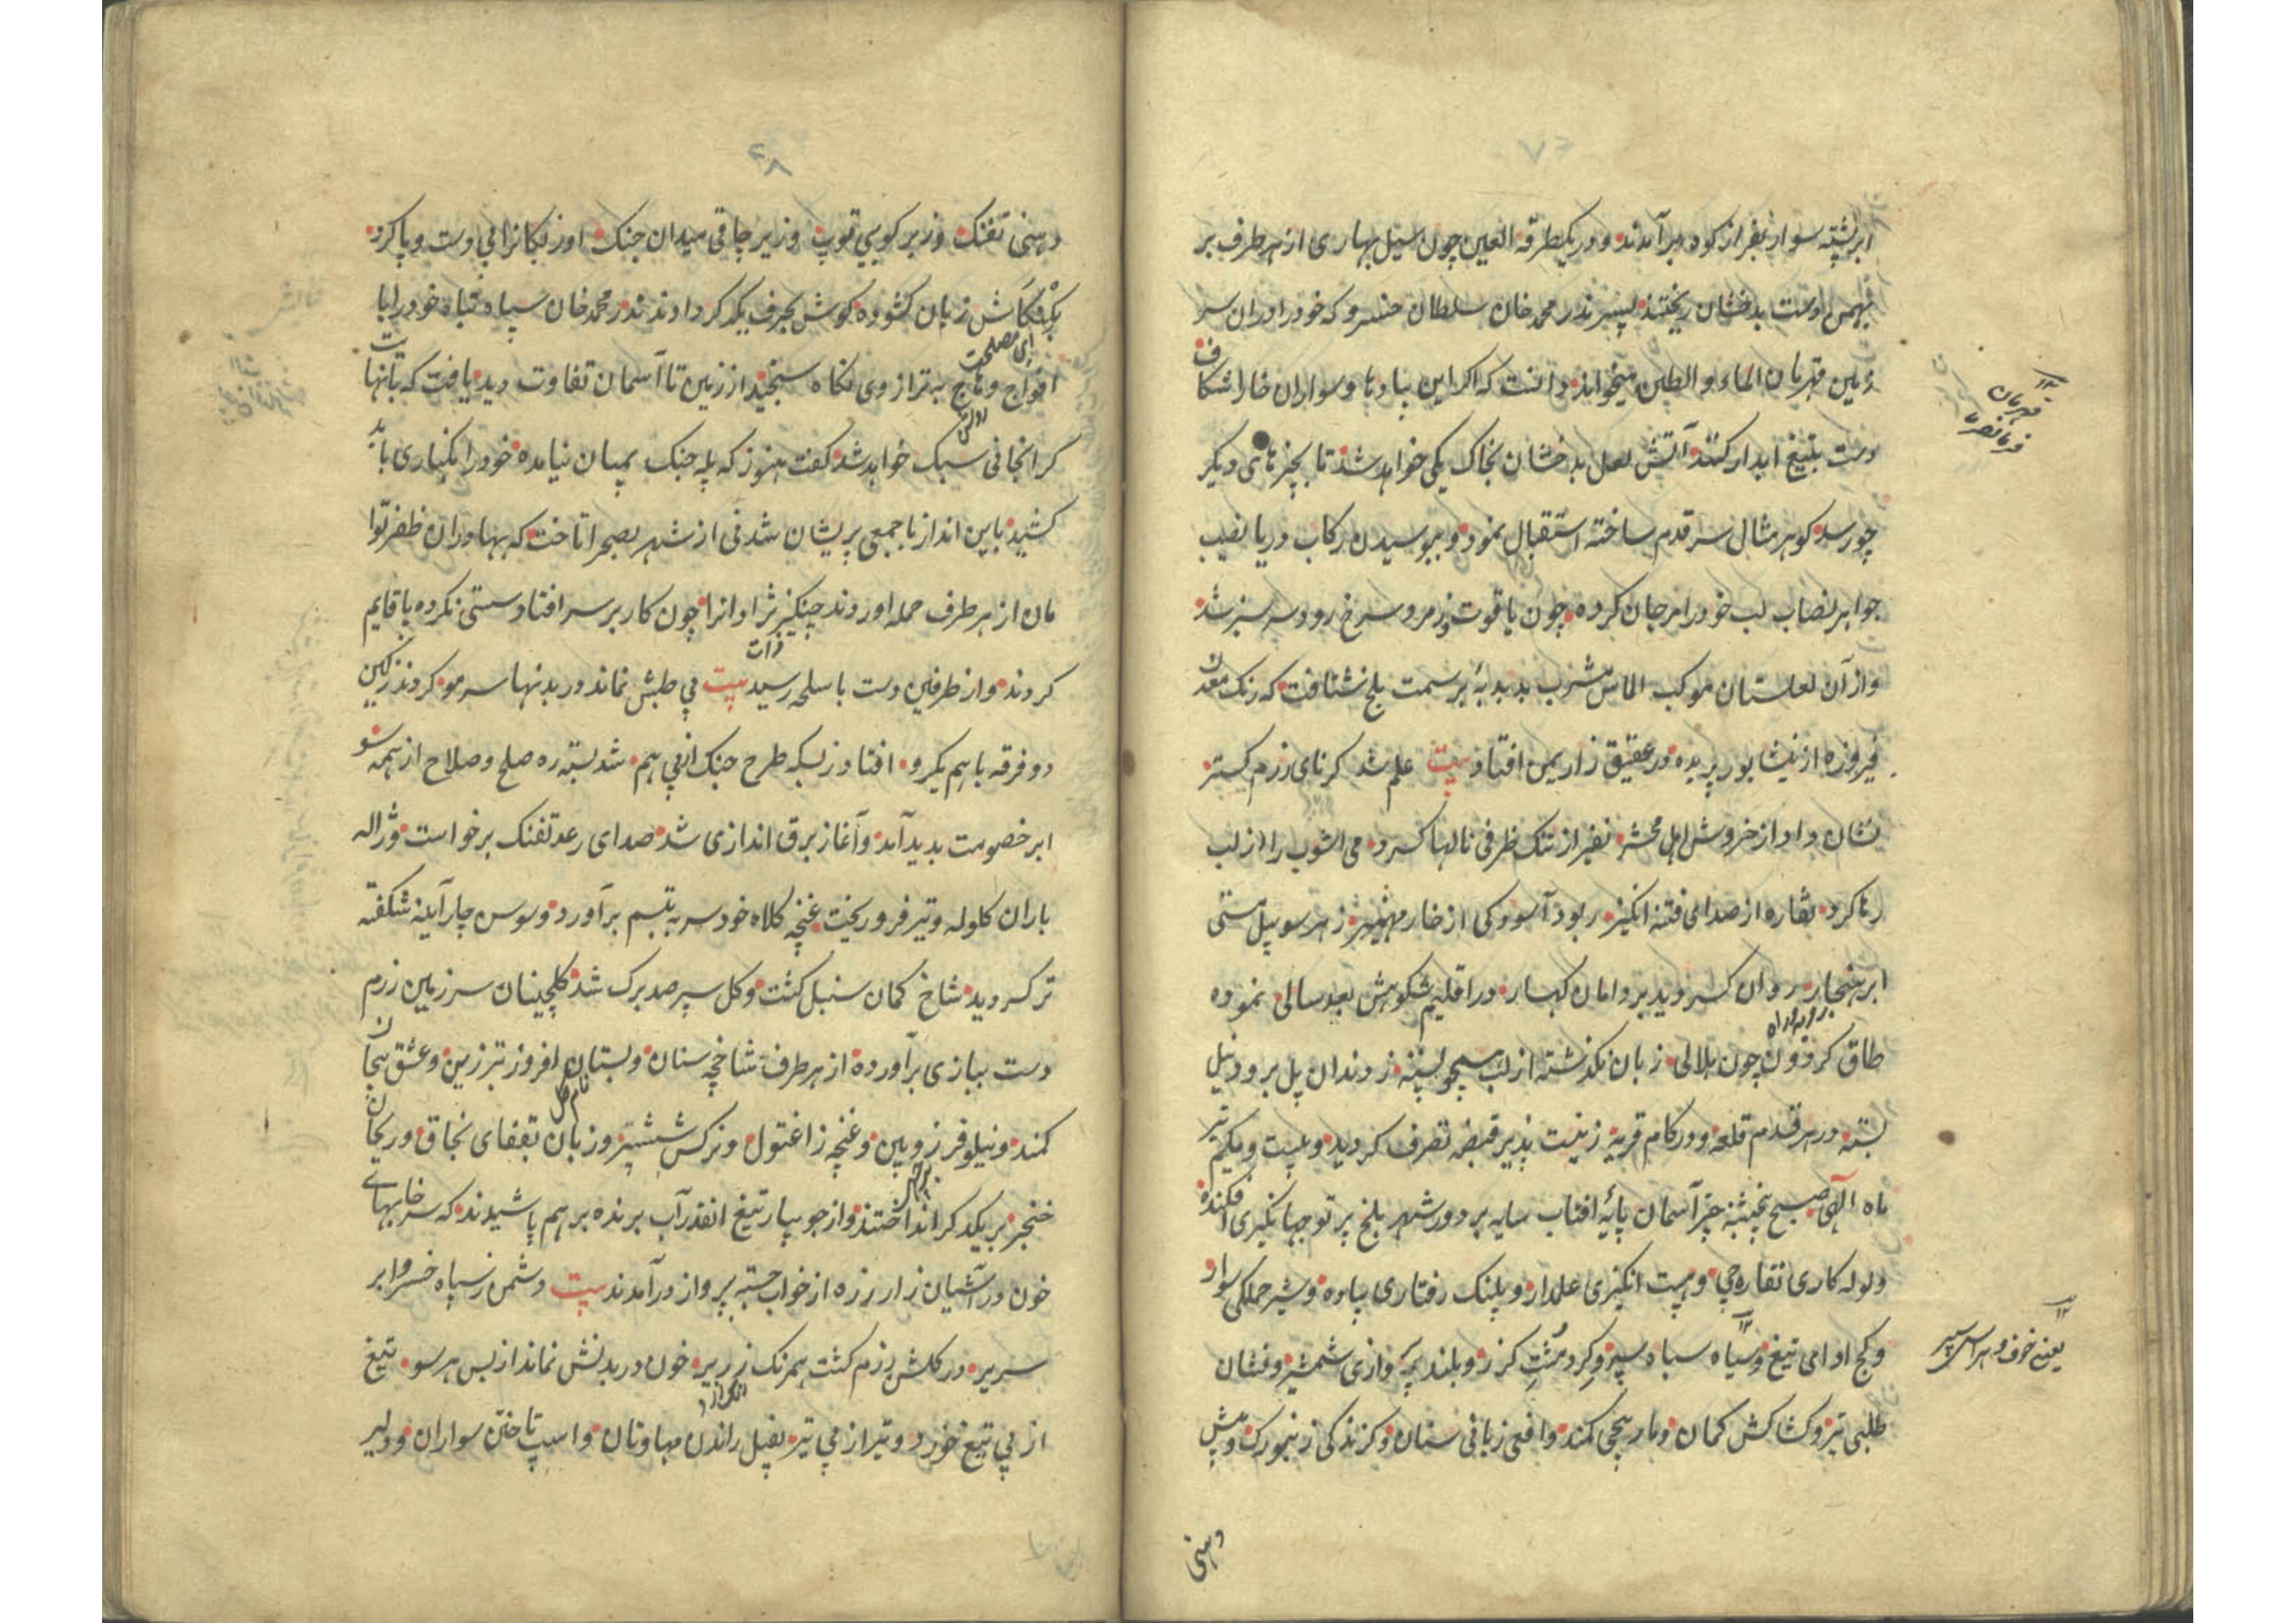 ابر پشته سوار نفر از کوه برآمدند و در یکطرفة العین چون سیل بهاری از هر طرف بر
بدخشان ریختند پسر نذر محمد خان سلطان خسرو که خود را در ان سر
زمین قهرمان الماء و الطین میخواند دانست که اکر این بادپا سواران خارا شکاف
دست بتیغ ابدار کنند آتش لعل بدخشان بخاک یکی خواهد شد تا بچیزهای دیکر
چو رسد کوهر مثال سر قدم ساخته استقبال نمود و ببوسیدن رکاب دریا نصیب
جواهر نصاب لب خود را مرجان کرده چون یاقوت و زمرد سرخ رو و سر سبز شد
و از آن لعلستان موکب الماس مشرب بدبدبهٔ بر سمت بلخ شتافت که رنک معدن
فیروزه از نیشابور پریده در عقیق زار یمن افتاد بیت علم شد کرنای رزم کستر
نشان داد از خروش اهل محشر نفیر از تنک ظرفی نالها کرد می اشوب را از لب
رها کرد نقاره از صدای فتنه انکیز ربود آسودکی از خار مهمیز ز هر سو پیل مستی
ابر هنجار روان کردید بر دامان کهسار در اقلیم شکوهش بعد سالی نموده
طاق کردون چون هلالی زبان نکذشته از لب همچو پشه ز دندان پل برود نیل
بسته در هر قدم قلعه و در هر کام قریه زینت پذیر قبضه تصرف کردید و بیست و یکم تیر
ماه الهی صبح پنجشنبه چتر آسمان پایهٔ افتاب سایه بر دور شهر بلخ پرتو جهانکیری افکنده
ولوله کاری نقاره چی و هیبت انکیزی علمدار و پلنک رفتاری پیاده و شیر حملکی سوار
و کج ادای تیغ و سیاه سیاه سپر و کرد مشت کرز و بلند پروازی شمشیر و نشان
طلبی تیر و کشاکش کمان و مار پیچی کمند و افعی زبانی سنان و کزندکی زنبورک و پیش
دهنی
قهرمان
فرمانفرما
یعنی خوف و هراس سپر
۴۸
دهنی تفنک و زبر کوبی توپ و زیر چاقی میدان جنک اوزبکانرا بی دست و پا کرد
بکنکاش زبان کشوده کوش بحرف یکدکر دادند نذر محمد خان سپاه تباه خود را با
ای مصلحت
افواج و تاج بترازوی نکاه سنجید از زمین تا آسمان تفاوت دید یافت که بانها
کرانجانی سبک خواهد شد کفت هنوز که پله جنک بمیان نیامده خود را بکناری باید
کشید باین انداز با جمعی پریشان شدنی از شهر بصحرا تاخت که بهادران ظفر توا
مان از هر طرف حمله اوردند چنکیز نژادانرا چون کار بر سر افتاد سستی نکرده پا قایم
کردند و از طرفین دست باسلحه رسید بیت پی طبش نماند در بدنها سر مو کردند ز کین
دو فرقه با هم یکرو افتاد ز بسکه طرح جنک از پی هم شد بسته ره صلح و صلاح از همه سو
ابر خصومت بدید آمد و آغاز برق اندازی شد صدای رعد تفنک برخواست و ژاله
باران کلوله و تیر فرو ریخت غنچه کلاه خود سر به تبسم برآورد و سوسن چار آینه شکفته
تر کردید شاخ کمان سنبل کشت و کل سپر صد برک شد کلچینان سر زمین رزم
دست ببازی برآورده از هر طرف شاخچه سنان و بستان افروز تبرزین و عشق پیچان
نام کل
کمند و نیلوفر زوبین و غنچه زاغنول و نرکس ششپر و زبان بقفای نجاق و ریحان
خنجر بر یکدکر انداختند و از جویبار تیغ انقدر آب برنده بر هم پاشیدند که سرخابهای
خون در آشیان زار زره از خواب جسته پرواز درآمدند بیت دشمن ز سپاه خسرو ابر
سریر در کلشن رزم کشت همرنک زریر خون در بدنش نماند از بس هر سو تیغ
از پی تیغ خورد و تیر از پی تیر بفیل راندن مهاوتان و اسپ تاختن سواران و دلیر